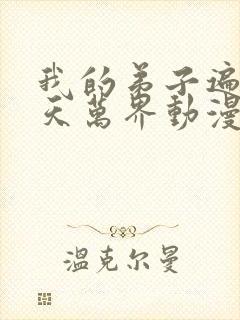 我的弟子遍
天萬界動漫
溫克尔曼